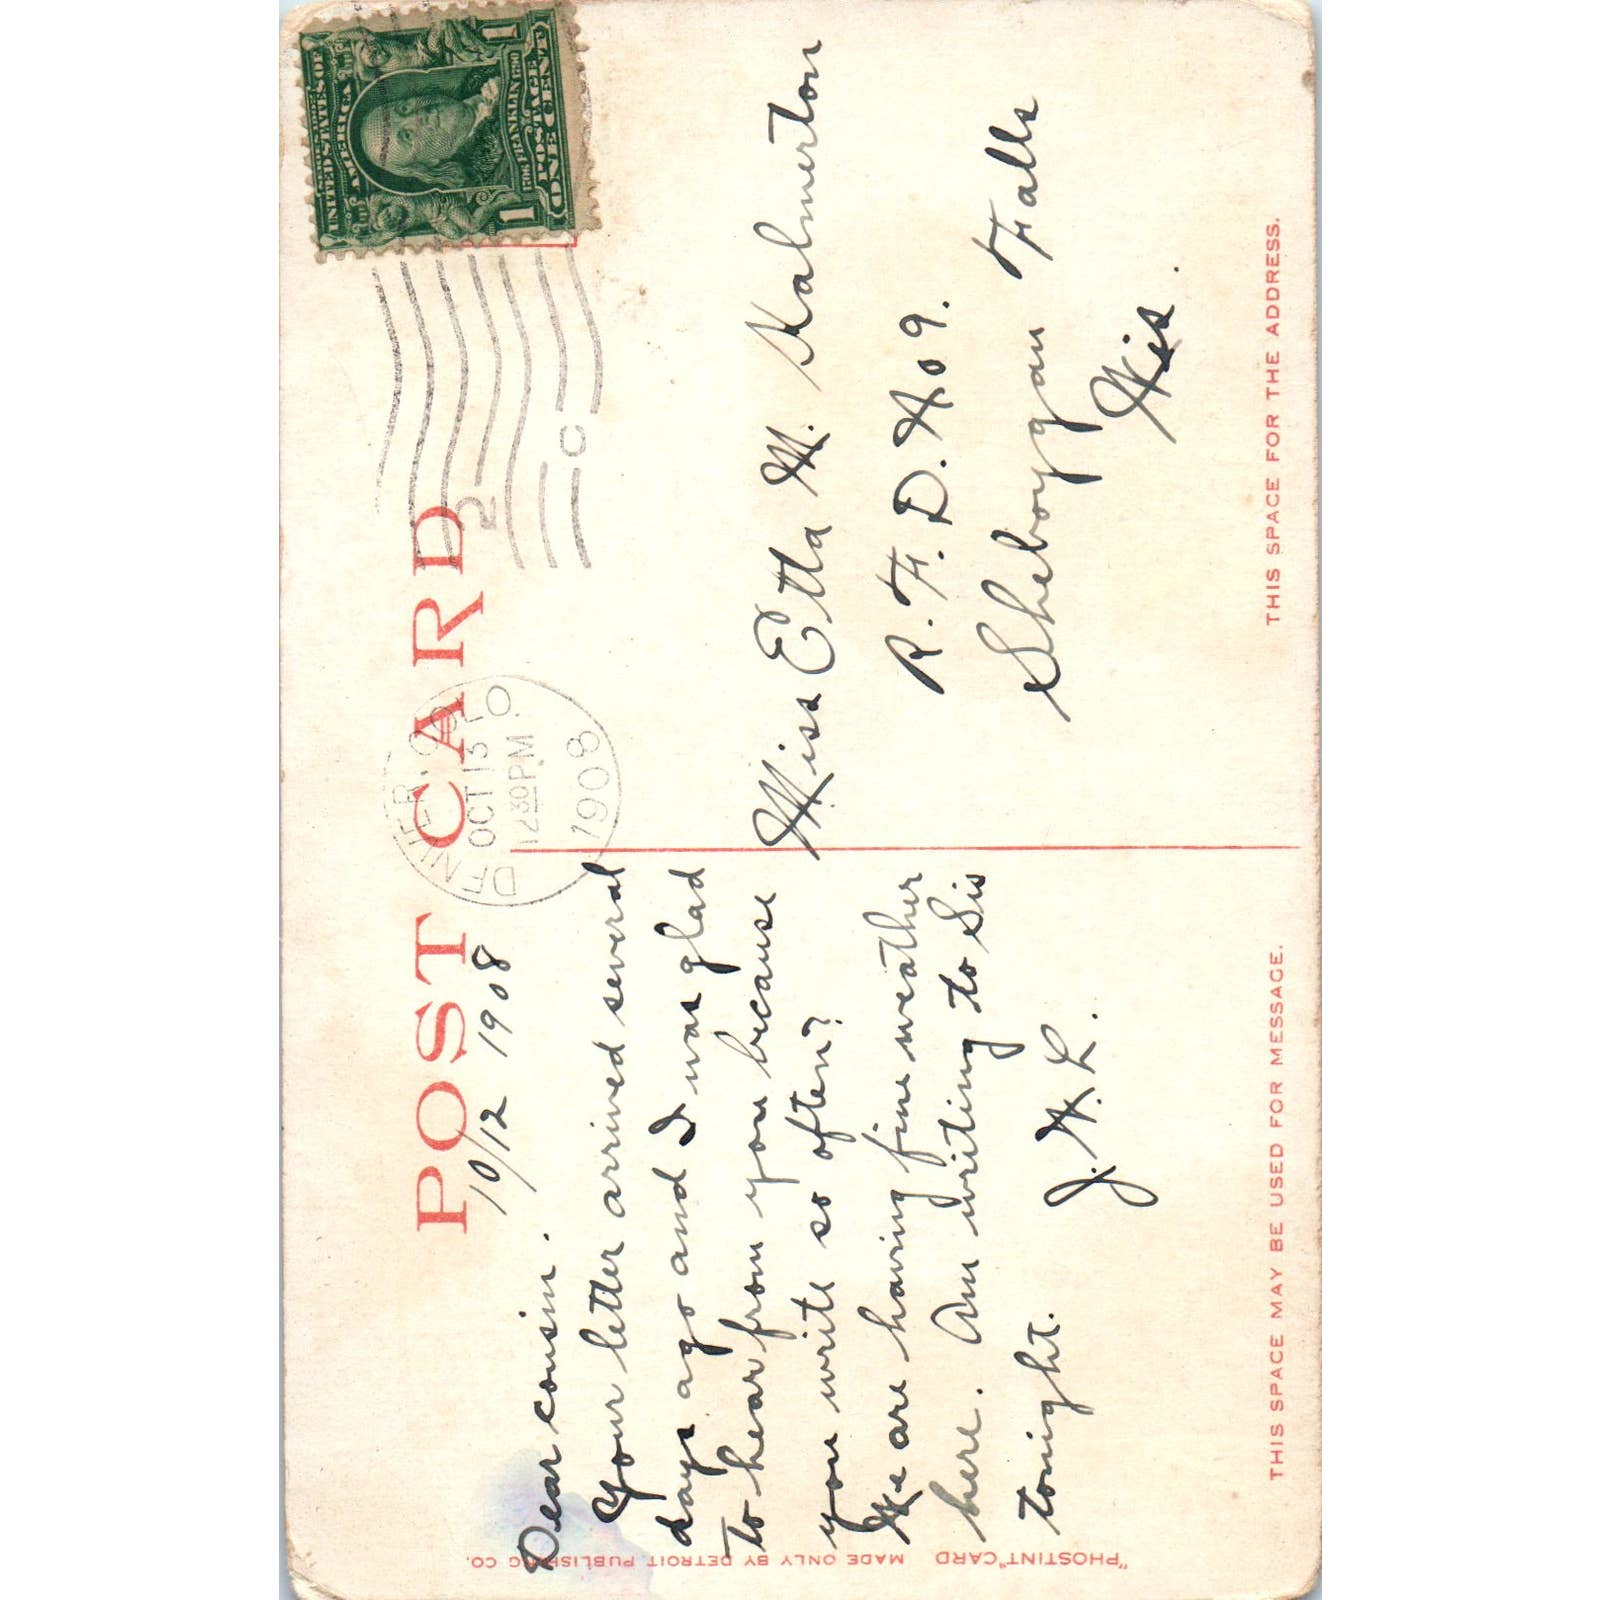 POST CARD
UNITED STATES OF
AMERICA
1706 FRANKLIN 1790
POSTAGE
1 ONE CENT 1
DENVER, COLO
OCT 13
12 30 PM
1908
2
C
10/12 1908
Dear cousin.
Your letter arrived several
days ago and I was glad
to hear from you because
you write so often?
We are having fine weather
here. Am writing to Sis
tonight.
J.W.L.
Miss Etta M. Kalmerton
R.F.D. No 9.
Sheboygan Falls
Wis.
THIS SPACE MAY BE USED FOR MESSAGE.
THIS SPACE FOR THE ADDRESS.
"PHOSTINT" CARD MADE ONLY BY DETROIT PUBLISHING CO.